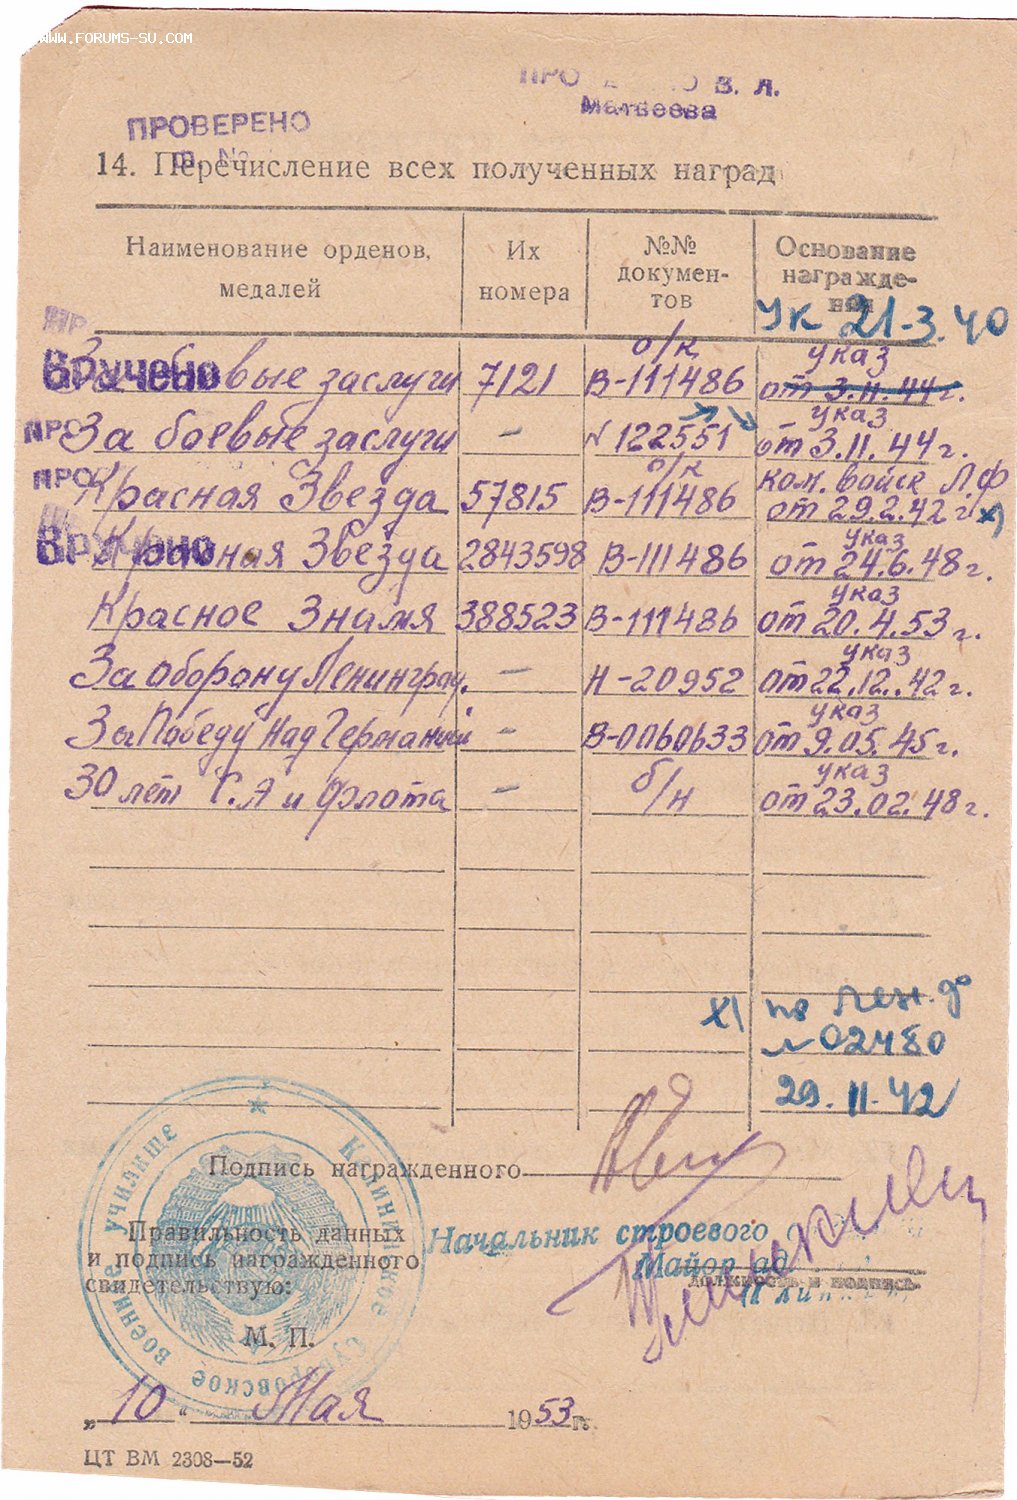 WWW.FORUMS-SU.COM
В. Л.
Матвеева
ПРОВЕРЕНО
14. Перечисление всех полученных наград
Наименование орденов, медалей
Их номера
№№ документов
Основание награждения
Ук 21-3.40
Вручено
За боевые заслуги 7121 о/к В-111486 указ от 3.11.44 г.
ПРО
За боевые заслуги – № 122551 указ от 3.11.44 г.
ПРО
Красная Звезда 57815 о/к В-111486 ком. войск Л.Ф от 29.2.42 г х)
Вручено
Красная Звезда 2843598 В-111486 указ от 24.6.48 г.
Красное Знамя 388523 В-111486 указ от 20.4.53 г.
За оборону Ленинград. – Н-20952 указ от 22.12.42 г.
За Победу над Германией – В-0060633 указ от 9.05.45 г.
30 лет С.А и Флота – б/н указ от 23.02.48 г.
х) по Лен. ф
№ 02480
29.11.42
Подпись награжденного
Правильность данных
и подпись награжденного
свидетельствую:
Начальник строевого
Майор ад
должность и подпись
М. П.
Калининское Суворовское военное училище
„ 10 “ Мая 1953 г.
ЦТ ВМ 2308—52